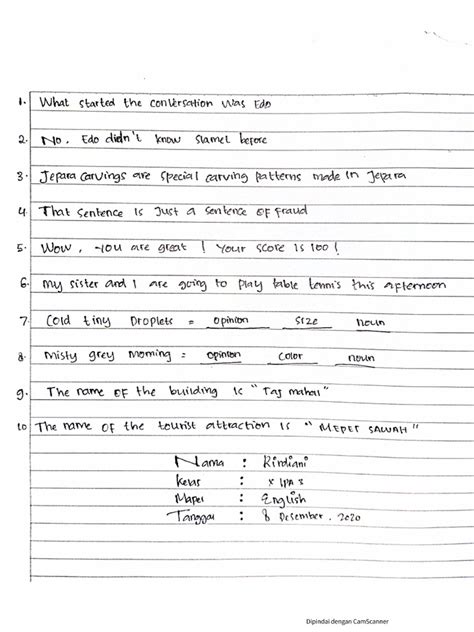 1. What started the conversation was Edo
2. No, Edo didn't know Slamet before
3. Jepara carvings are special carving patterns made in Jepara
4. That sentence is just a sentence of fraud
5. Wow, you are great! Your score is 100!
6. My sister and I are going to play table tennis this afternoon
7. Cold tiny Droplets = opinion size noun
8. Misty grey morning = opinion color noun
9. The name of the building is "Taj mahal"
10 The name of the tourist attraction is "MEPET SAWAH"
Nama : Rirdiani
Kelas : X IPA 3
Mapel : English
Tanggal : 8 Desember. 2020
Dipindai dengan CamScanner